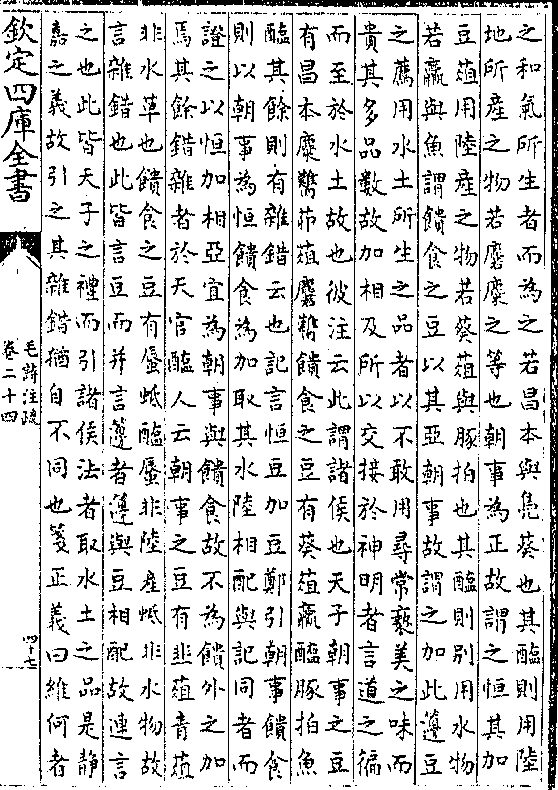 之和氣所生者而為之若昌本與鳧葵也其醢則用陸
地所產之物若麏麋之等也朝事為正故謂之恒其加
豆葅用陸產之物若葵葅與豚拍也其醢則別用水物
若蠃與魚謂饋食之豆以其亞朝事故謂之加此籩豆
之薦用水土所生之品者以不敢用尋常褻美之味而
貴其多品數故加相及所以交接於神明者言道之徧
而至於水土故也彼注云此謂諸侯也天子朝事之豆
有昌本麋臡茆葅麏臡饋食之豆有葵葅蠃醢豚拍魚
醢其餘則有雜錯云也記言恒豆加豆鄭引朝事饋食
則以朝事為恒饋食為加取其水陸相配與記同者而
證之以恒加相亞宜為朝事與饋食故不為饋外之加
焉其餘錯雜者於天官醢人云朝事之豆有韭葅青葅
非水草也饋食之豆有蜃蚳醢蜃非陸產蚳非水物故
言雜錯也此皆言豆而并言籩者籩與豆相配故連言
之也此皆天子之禮而引諸侯法者取水土之品是靜
嘉之義故引之其雜錯猶自不同也箋正義曰維何者
欽定四庫全書
毛詩注疏
卷二十四
四十七